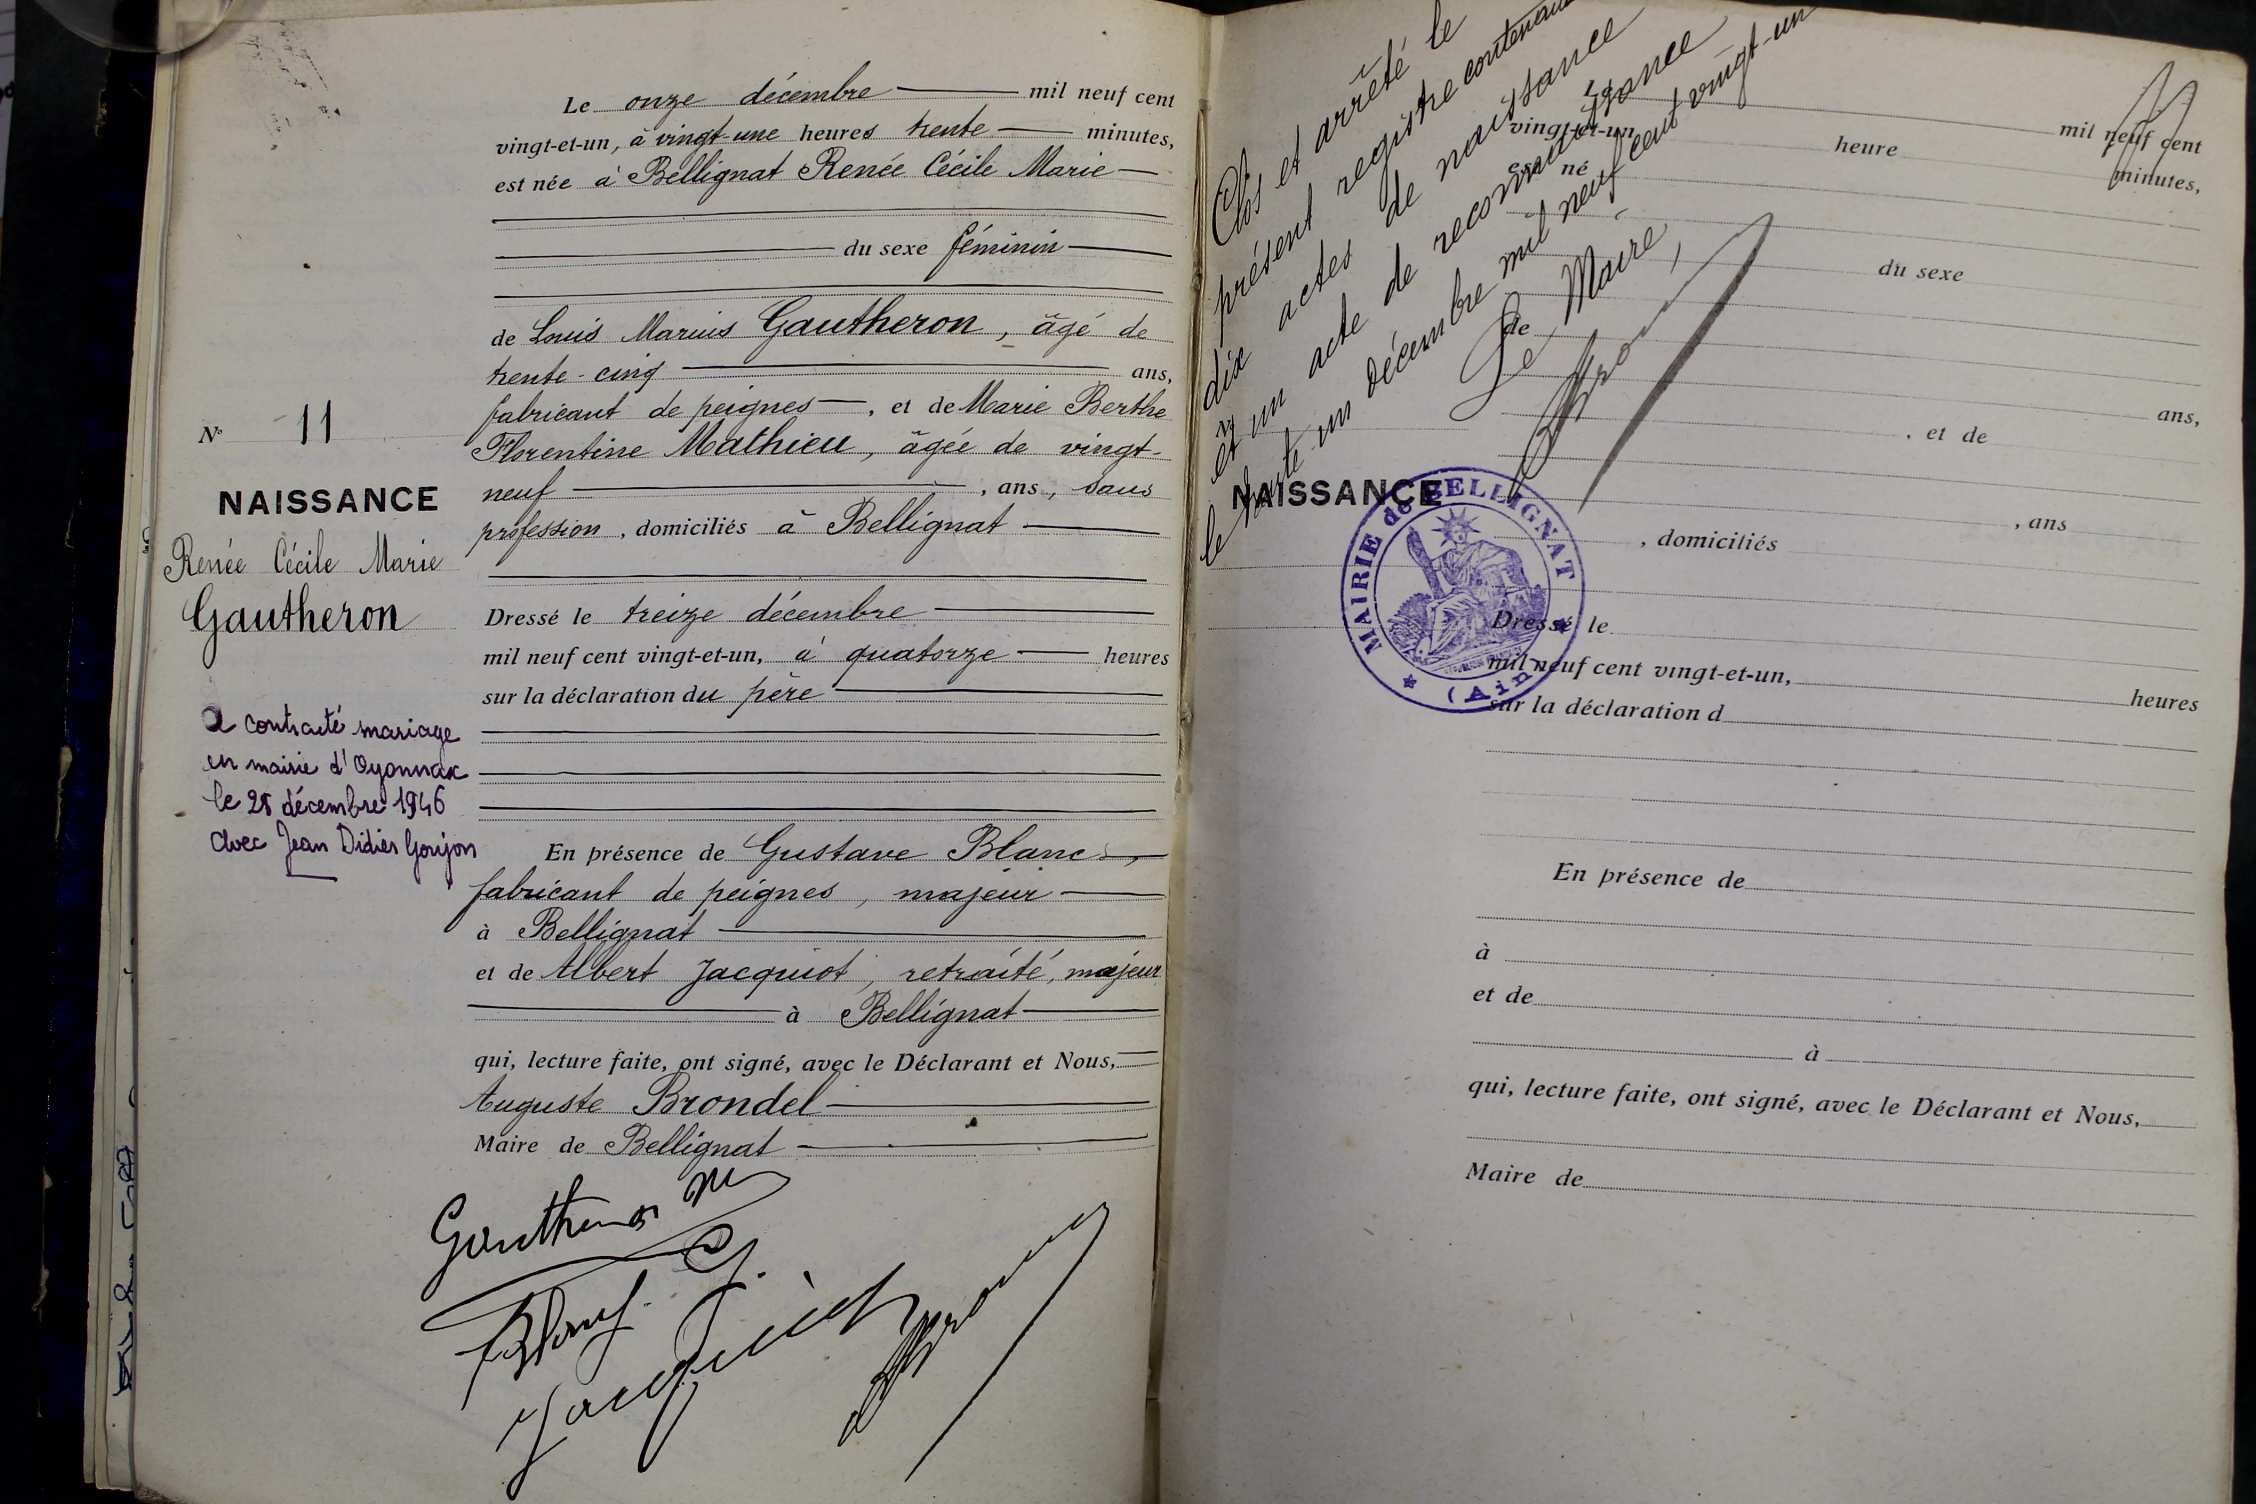 Le onze décembre mil neuf cent
vingt-et-un, à vingt-une heures trente minutes,
est née à Bellignat Renée Cécile Marie
du sexe féminin
de Louis Marius Gautheron, âgé de
trente-cinq ans,
fabricant de peignes, et de Marie Berthe
Florentine Mathieu, âgée de vingt-
neuf, ans, sans
profession, domiciliés à Bellignat
Dressé le treize décembre
mil neuf cent vingt-et-un, à quatorze heures
sur la déclaration du père
En présence de Gustave Blanc,
fabricant de peignes, majeur
à Bellignat
et de Albert Jacquiot, retraité, majeur
à Bellignat
qui, lecture faite, ont signé, avec le Déclarant et Nous,
Auguste Brondel
Maire de Bellignat
N° 11
NAISSANCE
Renée Cécile Marie
Gautheron
A contracté mariage
en mairie d'Oyonnax
le 28 décembre 1946
avec Jean Didier Goujon
Gautheron M
Blanc G.
Jacquiot
Clos et arrêté le
présent registre contenant
dix actes de naissance
et un acte de reconnaissance
le trente un décembre mil neuf cent vingt-un
Le Maire,
NAISSANCE
MAIRIE de BELLIGNAT
(Ain)
Le mil neuf cent
vingt-et-un heure minutes,
est né
du sexe
de
ans,
, et de
, ans
, domiciliés
Dressé le
mil neuf cent vingt-et-un, heures
sur la déclaration d
En présence de
à
et de
à
qui, lecture faite, ont signé, avec le Déclarant et Nous,
Maire de